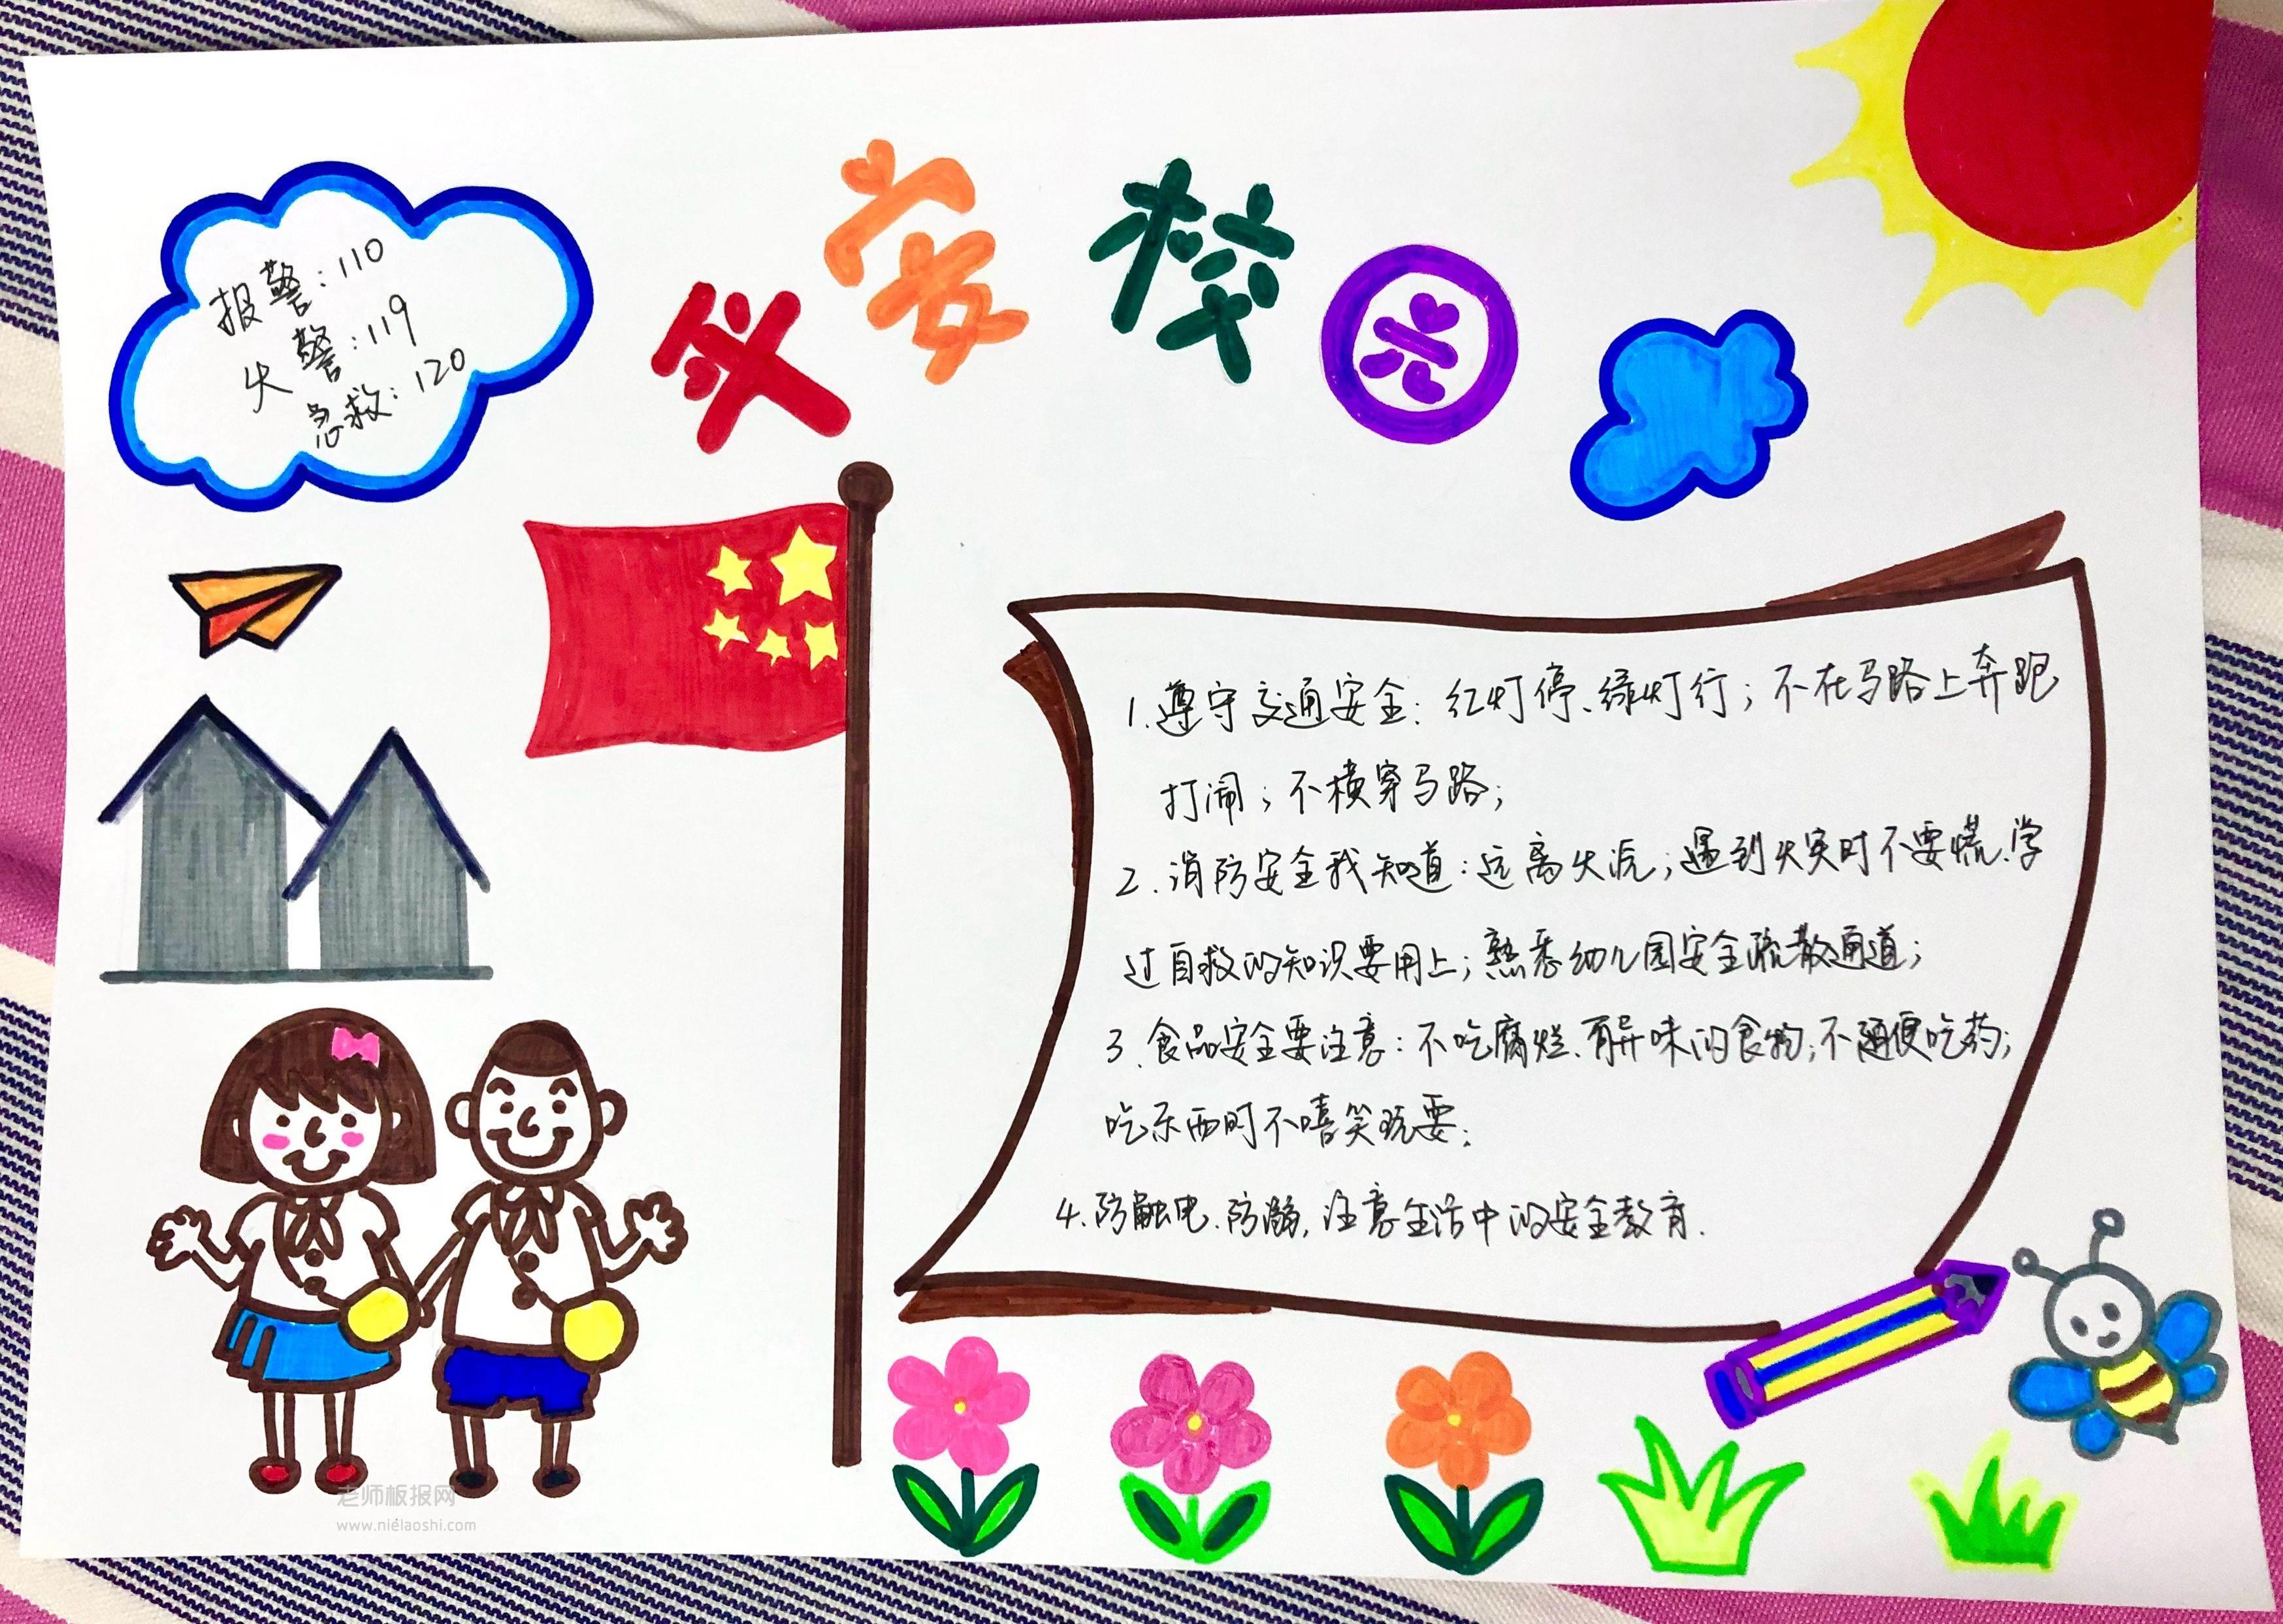 平安校园
报警:110
火警:119
急救:120
1.遵守交通安全:红灯停、绿灯行;不在马路上奔跑
打闹;不横穿马路;
2.消防安全我知道:远离火源;遇到火灾时不要慌.学
过自救的知识要用上;熟悉幼儿园安全疏散通道;
3.食品安全要注意:不吃腐烂、有异味的食物;不随便吃药;
吃东西时不嘻笑玩耍;
4.防触电.防溺,注意生活中的安全教育.
老师板报网
www.nielaoshi.com